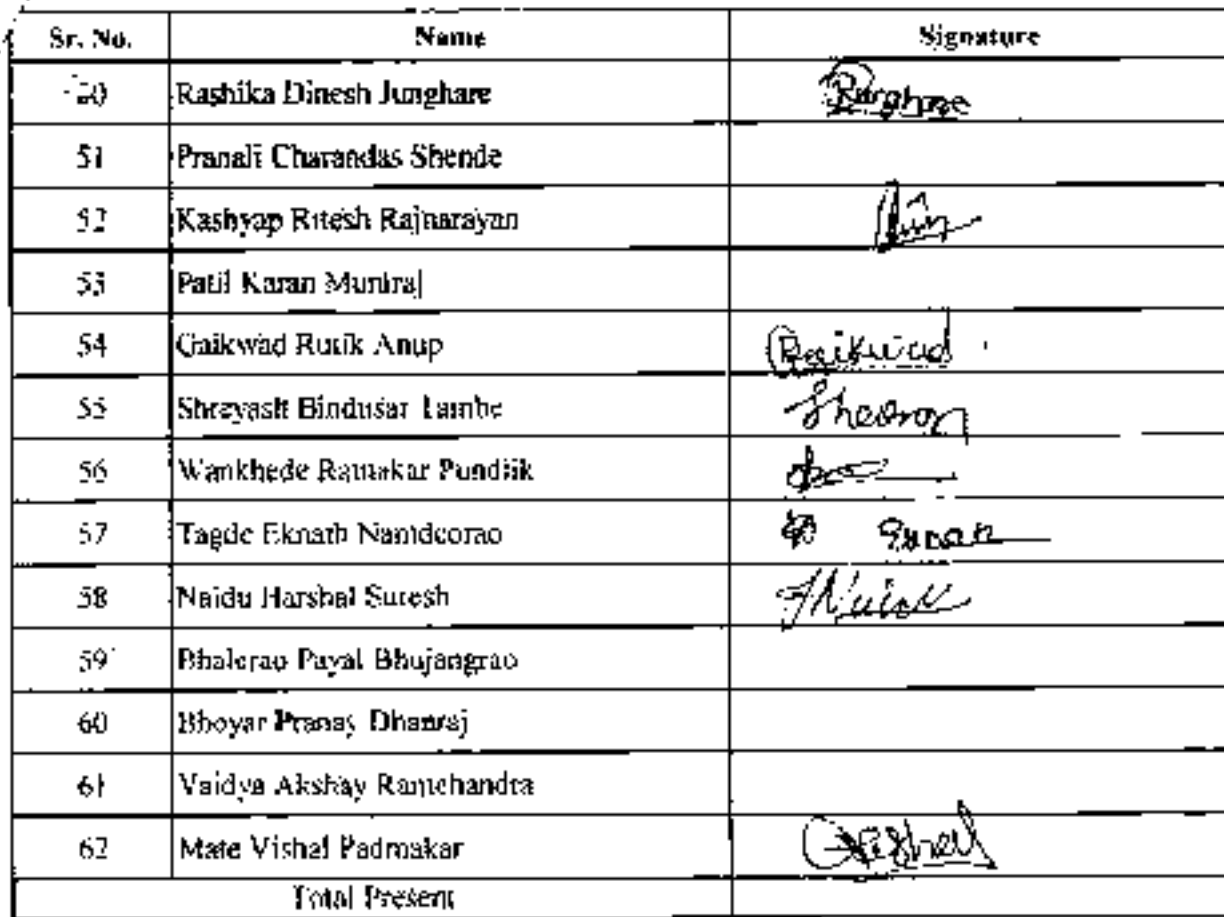 Sr. No. Name Signature
50 Rashika Dinesh Junghare
51 Pranali Charandas Shende
52 Kashyap Ritesh Rajnarayan
53 Patil Karan Muniraj
54 Gaikwad Rutik Anup Gaikwad
55 Shreyash Bindusar Tambe
56 Wankhede Ratnakar Pundlik
57 Tagde Eknath Namdeorao
58 Naidu Harshal Suresh
59 Bhalerao Payal Bhujangrao
60 Bhoyar Pranay Dhanraj
61 Vaidya Akshay Ramchandra
62 Mate Vishal Padmakar
Total Present